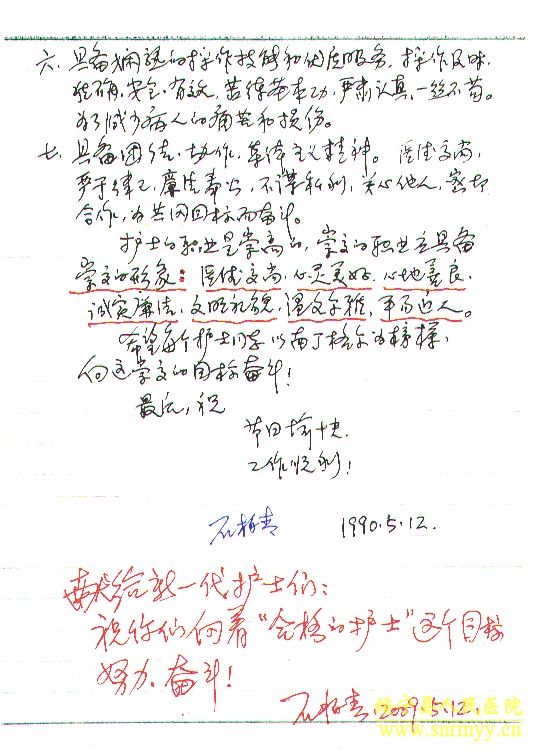 六、具备娴熟的操作技能和优质服务，操作及时，
准确，安全，有效，苦练基本功，严肃认真，一丝不苟。
为了减少病人的痛苦和损伤。
七、具备团结、协作，集体主义精神。医德高尚，
严于律己，廉洁奉公，不谋私利，关心他人，密切
合作，为共同目标而奋斗。
护士的职业是崇高的，崇高的职业应具备
崇高的形象：医德高尚，心灵美好，心地善良，
诚实廉洁，文明礼貌，温文尔雅，平易近人。
希望每个护士同志以南丁格尔为榜样，
向这崇高的目标奋斗！
最后，祝
节日愉快，
工作顺利！
石柏青 1990.5.12.
献给新一代护士们：
祝你们向着“合格的护士”这个目标
努力、奋斗！
石柏青 2009.5.12.
县人民医院
www.snrmyy.cn